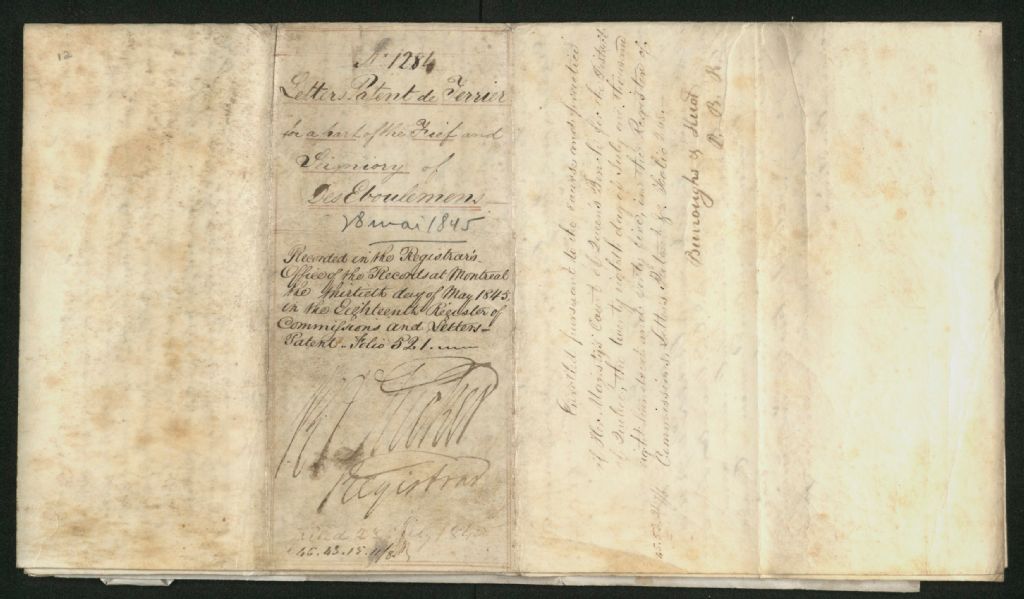 12
No. 1284
Letters Patent de Terrier
for a part of the Fief and
Seiniory of
Des Eboulemens
28 mai 1845
Recorded in the Registrar's
Office of the Records at Montreal
the thirtieth day of May 1845
in the Eighteenth Register of
Commissions and Letters-
Patent - Folio 521.
Registrar
Filed 28 July 1845
Enrolled pursuant to the
of Her Majesty's Court of Queen's Bench for the District
of Quebec, the twenty eighth day of July one thousand
eight hundred and forty five, in the Register of
Commissions & Letters Patent
Burroughs & Huot
P. B. R.